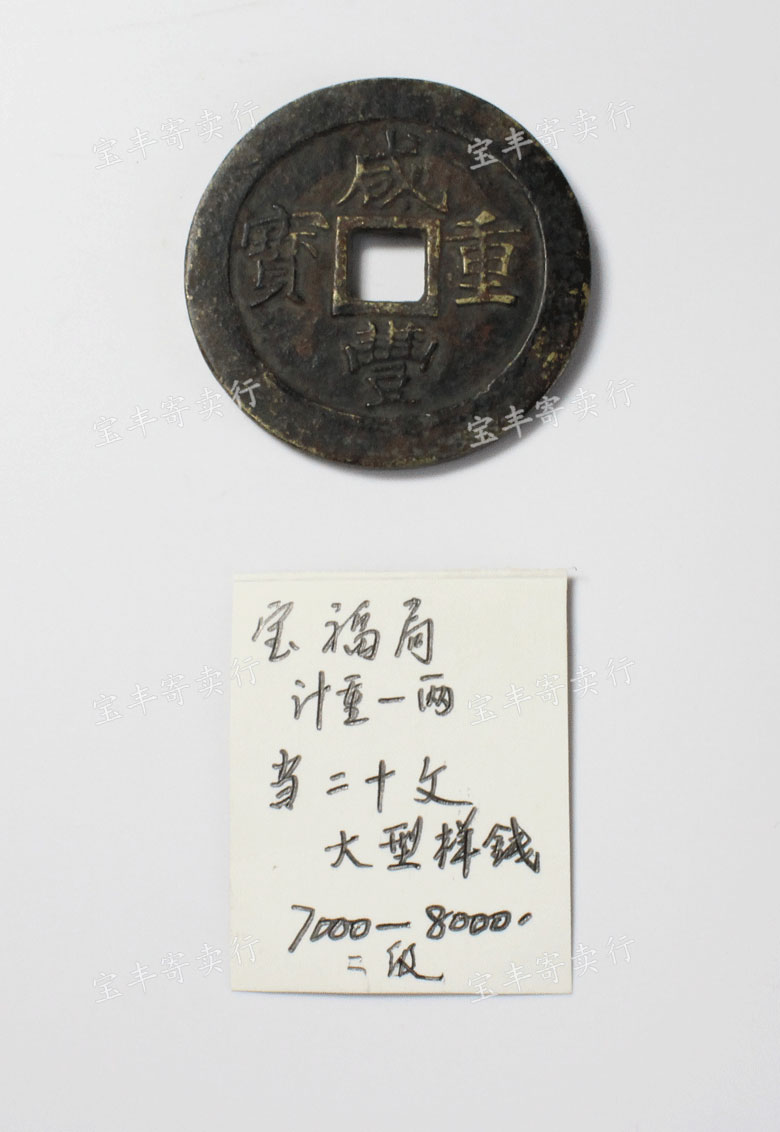 宝丰寄卖行 宝丰寄卖行
咸
寶 重
豐
宝丰寄卖行 宝丰寄卖行
宝福局
宝丰寄卖行 宝丰寄卖行
计重一两
当二十文
大型样钱
7000—8000.
宝丰寄卖行 宝丰寄卖行
二级